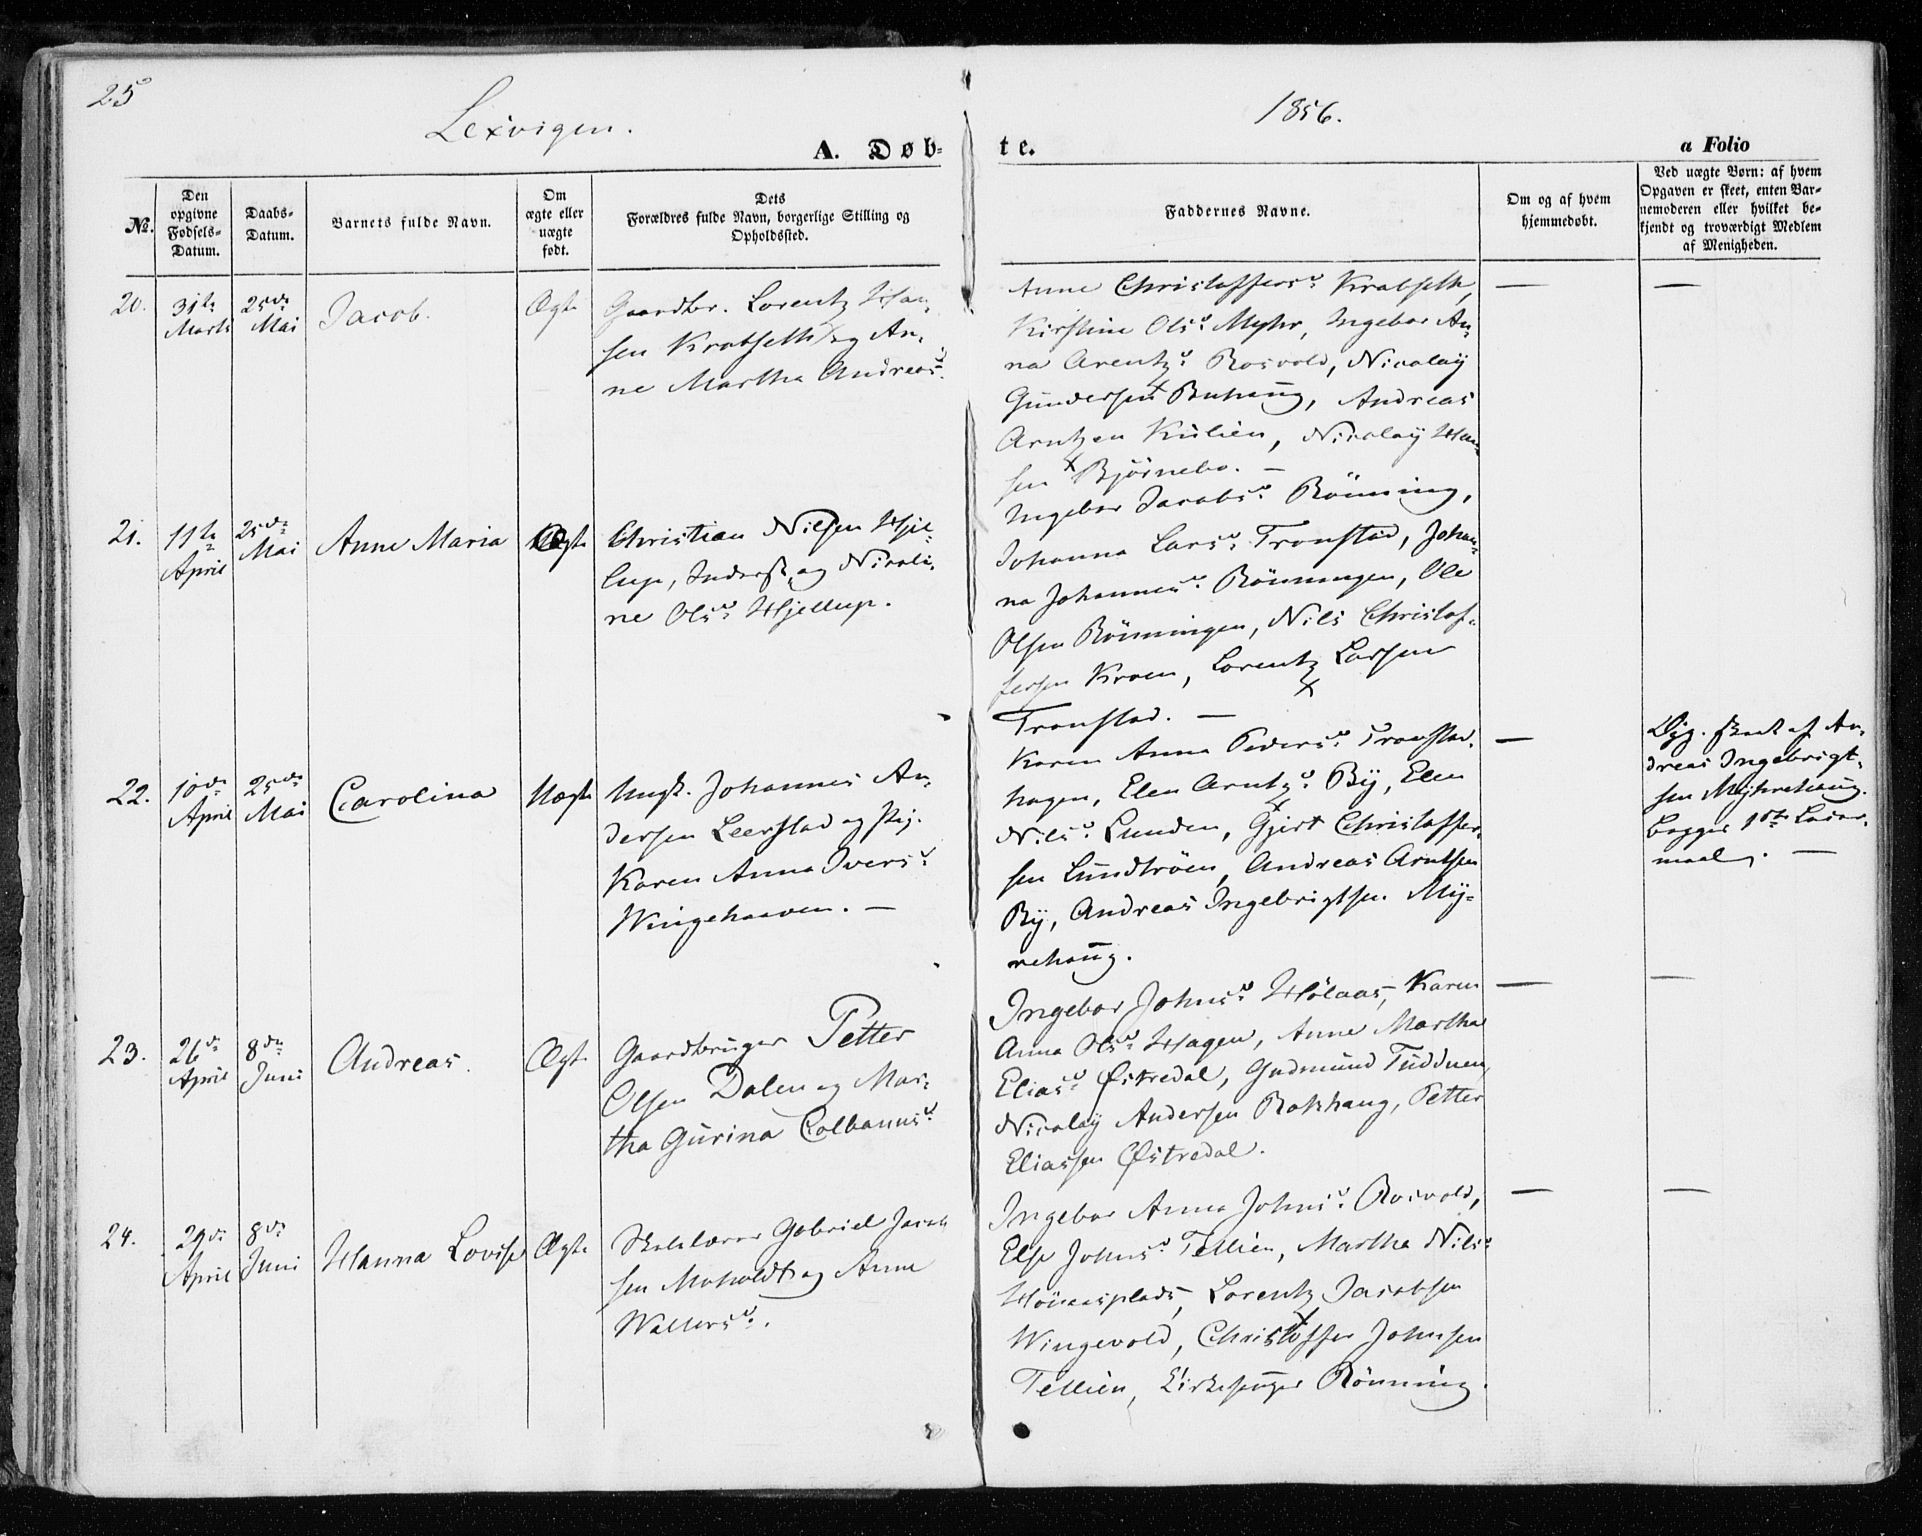 25
Lexvigen.
1856.
A. Døb-
te.
a Folio
No.
Den opgivne Fødsels-Datum.
Daabs-Datum.
Barnets fulde Navn.
Om ægte eller uægte født.
Dets Forældres fulde Navn, borgerlige Stilling og Opholdssted.
Faddernes Navne.
Om og af hvem hjemmedøbt.
Ved uægte Børn: af hvem Opgaven er skeet, enten Barnemoderen eller hvilket bekjendt og troværdigt Medlem af Menigheden.
20.
31te Marts
25de Mai
Jacob.
Ægte
Gaardbr. Lorentz Han-
sen Kratseth og An-
ne Martha Andreas.
Anne Christoffers. Kratseth,
Kirstine Ols. Myhr, Ingebor An-
na Arentz. Rosvold, Nicolaÿ
Gundersen Buhaug, Andreas
Arntzen Kulien, Nicolaÿ Han-
sen Bjørnebo. —
—
—
21.
11te April
25de Mai
Anne Maria
Ægte
Christian Nilsen Hjel-
lup, Inderst, og Nicoli-
ne Ols. Hjellup.
Ingebor Jacobs. Rönning,
Johanna Lars. Tronstad, Johan-
na Johannes. Rönningen, Ole
Olsen Rönningen, Nils Christof-
fersen Kroen, Lorentz Larsen
Tronstad. —
22.
10de April
25de Mai
Carolina
Uægte
Ungk. Johannes An-
dersen Leerstad og Pig.
Karen Anna Ivers.
Wingehaaven. —
Karen Anna Peders. Tronstad-
hagen, Elen Arntz. Bÿ, Elen
Nils. Lunden, Gjert Christoffer-
sen Lundtröen, Andreas Arntsen
Bÿ, Andreas Ingebrigtsen Mÿ-
rehaug.
—
Opg. skeet af An-
dreas Ingebrigt-
sen Mÿhrehaug.
begges 1ste Leier-
maal. —
23.
26de April
8de Juni
Andreas.
Ægte
Gaardbruger Petter
Olsen Dalen og Mar-
tha Gurina Colbanns.
Ingebor Johns. Hölaas, Karen
Anna Ols. Hagen, Anne Martha
Elias. Østredal, Gudmund Tuddnen,
Nicolaÿ Andersen Rokhaug, Petter
Eliassen Østredal.
—
—
24.
29de April
8de Juni
Hanna Lovise
Ægte
Skolelærer Gabriel Jacob-
sen Moholdt og Anne
Walters.
Ingebor Anna Johns. Rosvold,
Else Johns. Tellien, Martha Nils.
Höiaasplads, Lorentz Jacobsen
Wingevold, Christoffer Johnsen
Tellien, Kirkesanger Rönning.
—
—